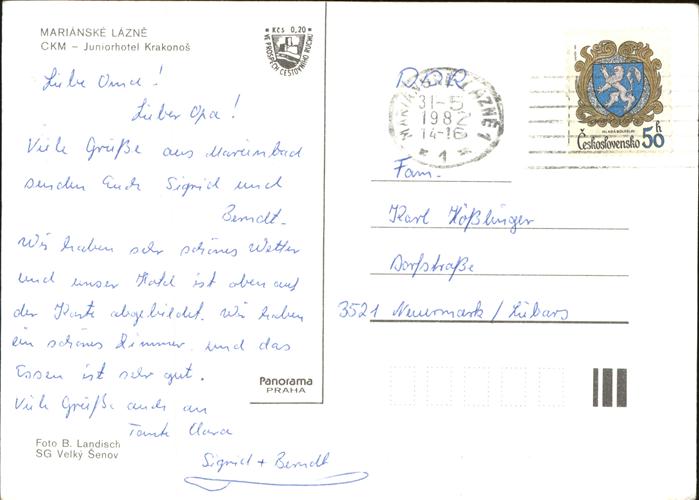 MARIÁNSKÉ LÁZNĚ
CKM – Juniorhotel Krakonoš
Kčs 0,20
VE PROSPĚCH CESTOVNÍHO RUCHU
Liebe Oma!
Lieber Opa!
Viele Grüße aus Marienbad
senden Euch Sigrid und
Berndt.
Wir haben sehr schönes Wetter
und unser Hotel ist oben auf
der Karte abgebildet. Wir haben
ein schönes Zimmer und das
Essen ist sehr gut.
Viele Grüße auch an
Tante Clara
Sigrid + Berndt
Foto B. Landisch
SG Velký Šenov
Panorama
PRAHA
DDR
MARIÁNSKÉ LÁZNĚ 1
31-5
1982
14-16
1
MLADÁ BOLESLAV
Československo 50 h
Fam.
Karl Hößlinger
Dorfstraße
3521 Neuermark / Lübars